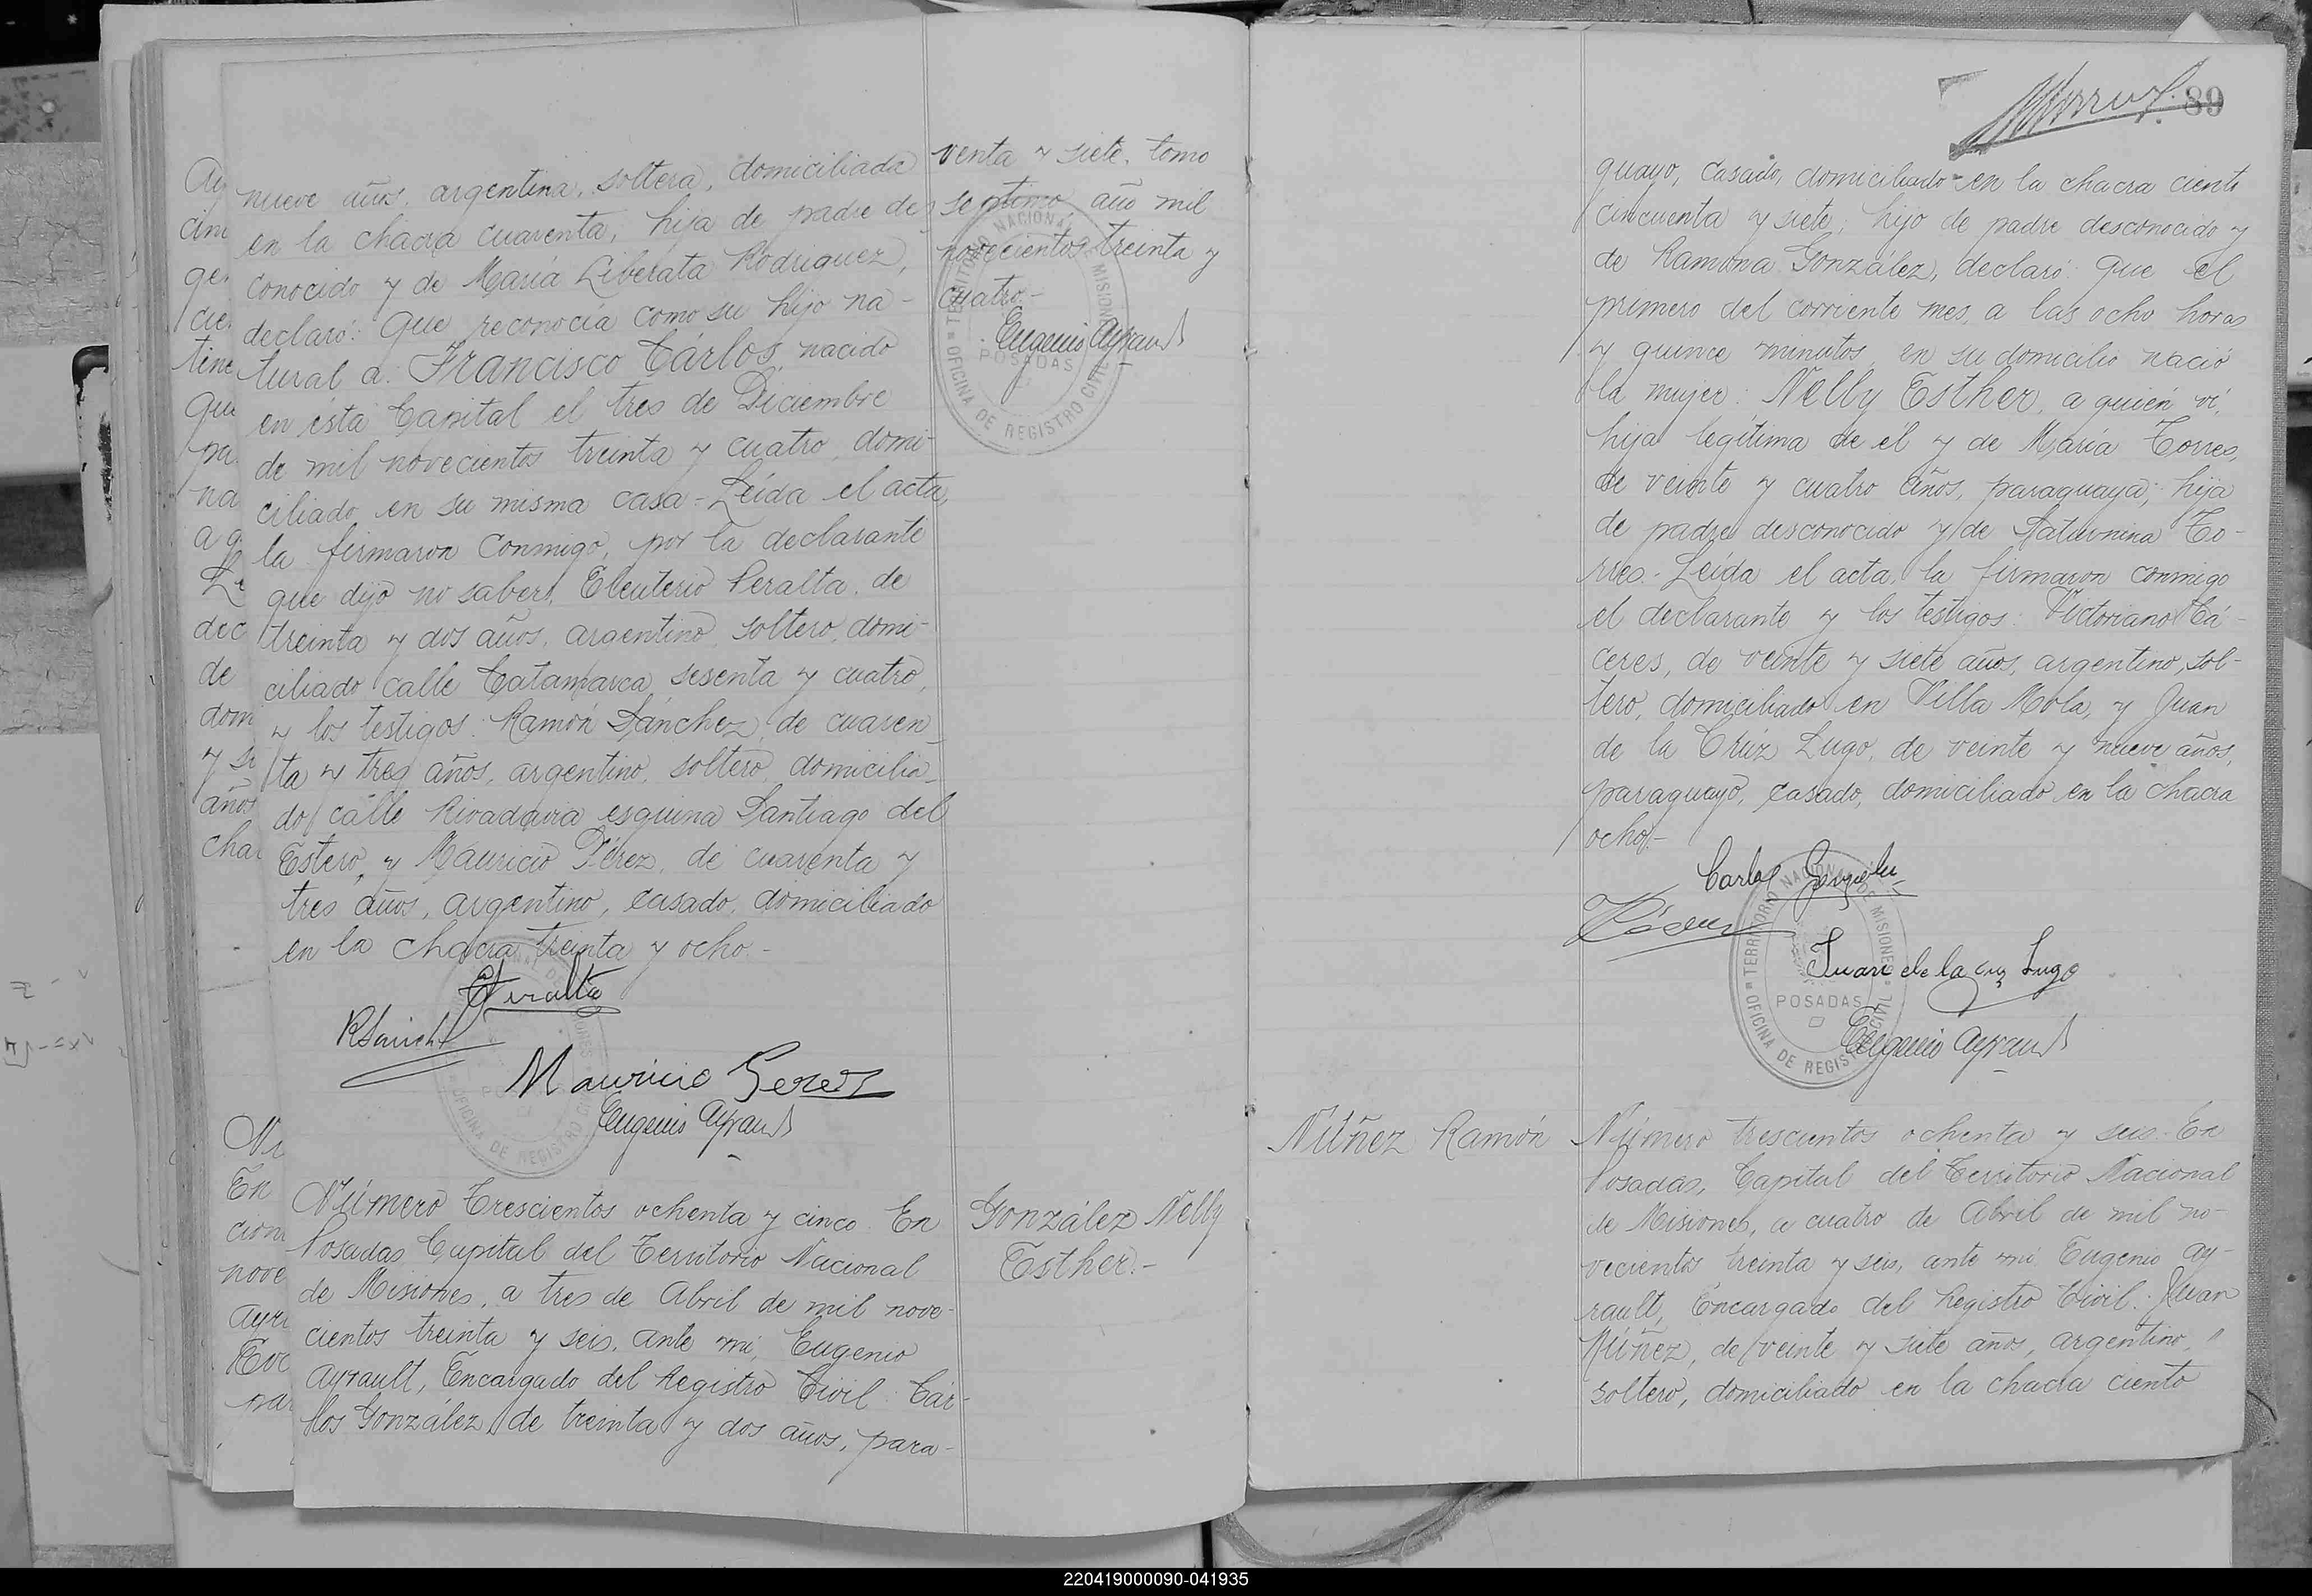 nueve años, argentina, soltera, domiciliada
en la chacra cuarenta, hija de padre des
conocido y de María Liberata Rodriguez,
declaró: Que reconocía como su hijo na-
tural a: Francisco Cárlos, nacido
en ésta Capital el tres de Diciembre
de mil novecientos treinta y cuatro, domi-
ciliado en su misma casa - Leída el acta,
la firmaron conmigo, por la declarante
que dijo no saber, Eleuterio Peralta, de
treinta y dos años, argentino, soltero, domi-
ciliado calle Catamarca sesenta y cuatro,
y los testigos: Ramón Sánchez, de cuaren
ta y tres años, argentino, soltero, domicilia-
do calle Rivadavia esquina Santiago del
Estero, y Mauricio Pérez, de cuarenta y
tres años, argentino, casado, domiciliado
en la chacra treinta y ocho.-
Mauricio Perez
Eugenio Ayrault
Número Trescientos ochenta y cinco. En
Posadas Capital del Territorio Nacional
de Misiones, a tres de Abril de mil nove-
cientos treinta y seis, ante mi, Eugenio
Ayrault, Encargado del Registro Civil: Cár-
los González, de treinta y dos años, para-
venta y siete, tomo
septimo, año mil
novecientos treinta y
cuatro.-
Eugenio Ayrault
TERRITORIO NACIONAL DE MISIONES
POSADAS
OFICINA DE REGISTRO CIVIL
González Nelly
Esther.-
89
guayo, casado, domiciliado en la chacra ciento
cincuenta y siete; hijo de padre desconocido y
de Ramona González, declaró: Que el
primero del corriente mes, a las ocho horas
y quince minutos, en su domicilio nació
la mujer: Nelly Esther, a quién ví,
hija legítima de él y de María Torres,
de veinte y cuatro años, paraguaya; hija
de padre desconocido y de Saturnina To-
rres.- Leída el acta, la firmaron conmigo
el declarante y los testigos: Victoriano Cá-
ceres, de veinte y siete años, argentino, sol-
tero, domiciliado en Villa Mola, y Juan
de la Crúz Lugo, de veinte y nueve años,
paraguayo, casado, domiciliado en la chacra
ocho.-
Juan de la Cruz Lugo
Eugenio Ayrault
TERRITORIO NACIONAL DE MISIONES
POSADAS
OFICINA DE REGISTRO CIVIL
Núñez Ramón
Número trescientos ochenta y seis. En
Posadas, Capital del Territorio Nacional
de Misiones, a cuatro de Abril de mil no-
vecientos treinta y seis, ante mi, Eugenio Ay-
rault, Encargado del Registro Civil: Juan
Núñez, de veinte y siete años, argentino,
soltero, domiciliado en la chacra ciento
220419000090-041935